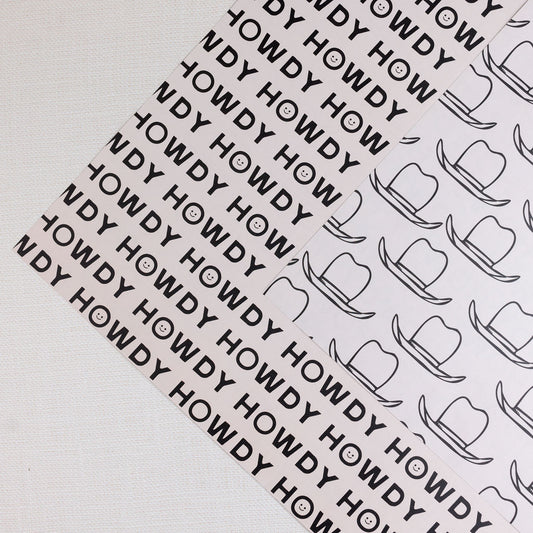 HOW
HOWDY
HOWDY HOW
HOWDY HOWDY
WDY HOWDY
HOWDY HOW
WDY HOWDY
HOWDY HOW
WDY HOWDY
HOWDY HOW
WDY HOWDY HOWDY HOWDY
HOWDY HOWDY HOWDY HOWDY
WDY HOWDY HOWDY HOW